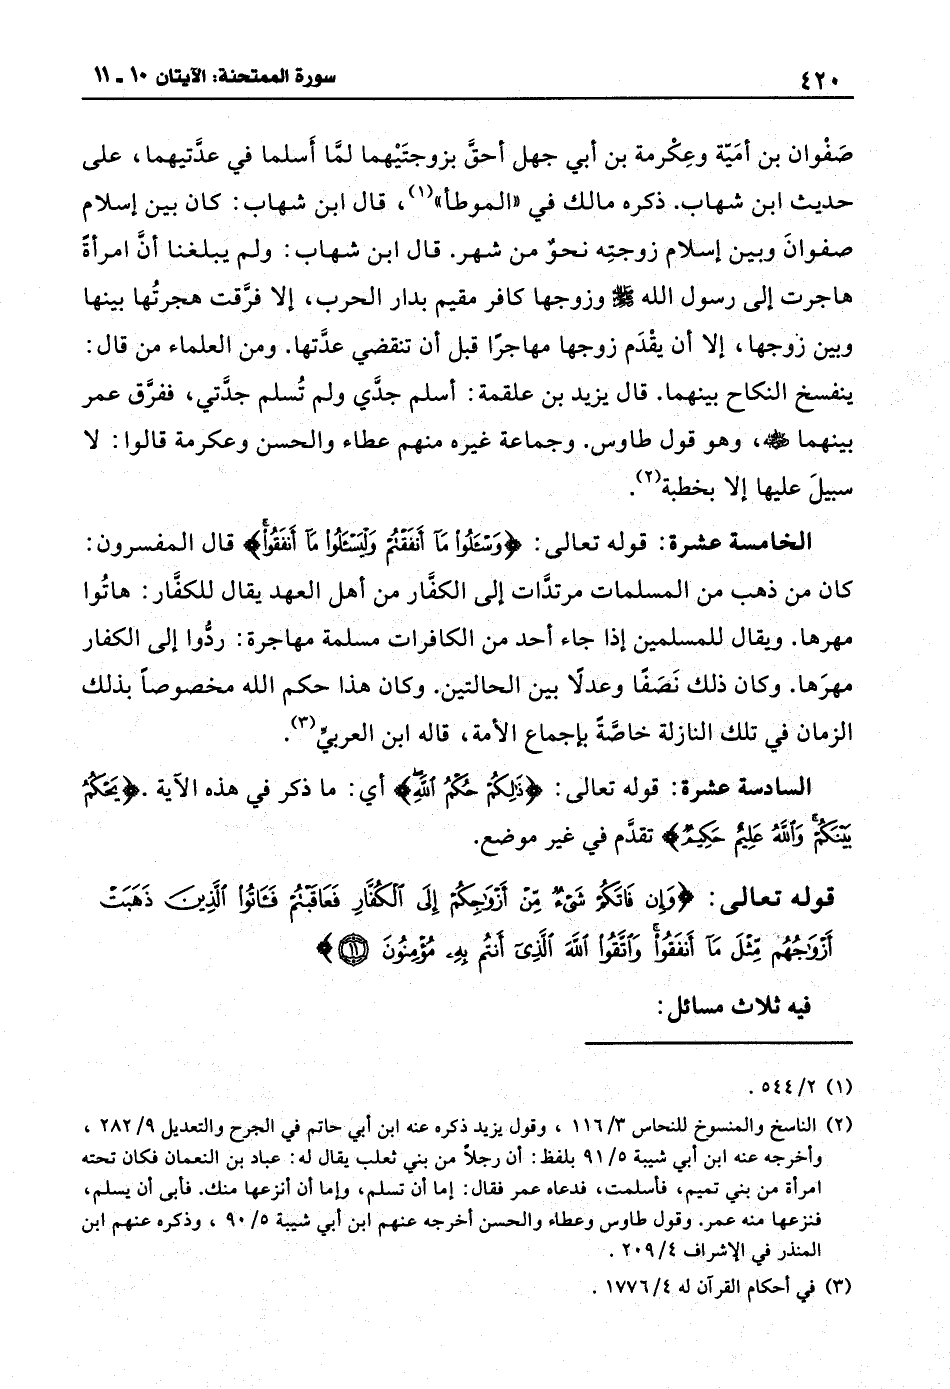 ٤٢٠ سورة الممتحنة: الآيتان ١٠ - ١١
صَفْوان بن أمَيّة وعِكْرمة بن أبي جهل أحقَّ بزوجتَيْهما لمَّا أَسلما في عدَّتيهما، على
حديث ابن شهاب. ذكره مالك في «الموطأ»(١)، قال ابن شهاب: كان بين إسلام
صفوانَ وبين إسلام زوجتِه نحوٌ من شهر. قال ابن شهاب: ولم يبلغنا أنَّ امرأةً
هاجرت إلى رسول الله ﷺ وزوجها كافر مقيم بدار الحرب، إلا فرَّقت هجرتُها بينها
وبين زوجها، إلا أن يقْدَم زوجها مهاجرًا قبل أن تنقضي عدَّتها. ومن العلماء من قال:
ينفسخ النكاح بينهما. قال يزيد بن علقمة: أسلم جدَّي ولم تُسلم جدَّتي، ففرَّق عمر
بينهما ﷺ، وهو قول طاوس. وجماعة غيره منهم عطاء والحسن وعكرمة قالوا: لا
سبيلَ عليها إلا بخطبة(٢).
الخامسة عشرة: قوله تعالى: ﴿وَسْـَٔلُوا۟ مَآ أَنفَقْتُمْ وَلْيَسْـَٔلُوا۟ مَآ أَنفَقُوا۟ۚ﴾ قال المفسرون:
كان من ذهب من المسلمات مرتدَّات إلى الكفَّار من أهل العهد يقال للكفَّار: هاتُوا
مهرها. ويقال للمسلمين إذا جاء أحد من الكافرات مسلمة مهاجرة: ردُّوا إلى الكفار
مهرَها. وكان ذلك نَصَفًا وعدلًا بين الحالتين. وكان هذا حكم الله مخصوصاً بذلك
الزمان في تلك النازلة خاصَّةً بإجماع الأمة، قاله ابن العربيِّ(٣).
السادسة عشرة: قوله تعالى: ﴿ذَٰلِكُمْ حُكْمُ ٱللَّهِۖ﴾ أي: ما ذكر في هذه الآية .﴿يَحْكُمُ
بَيْنَكُمْۚ وَٱللَّهُ عَلِيمٌ حَكِيمٌ﴾ تقدَّم في غير موضع.
قوله تعالى: ﴿وَإِن فَاتَكُمْ شَىْءٌ مِّنْ أَزْوَٰجِكُمْ إِلَى ٱلْكُفَّارِ فَعَاقَبْتُمْ فَـَٔاتُوا۟ ٱلَّذِينَ ذَهَبَتْ
أَزْوَٰجُهُم مِّثْلَ مَآ أَنفَقُوا۟ۚ وَٱتَّقُوا۟ ٱللَّهَ ٱلَّذِىٓ أَنتُم بِهِۦ مُؤْمِنُونَ ۝١١﴾
فيه ثلاث مسائل:
(١) ٢/ ٥٤٤ .
(٢) الناسخ والمنسوخ للنحاس ٣/ ١١٦ ، وقول يزيد ذكره عنه ابن أبي حاتم في الجرح والتعديل ٩/ ٢٨٢ ،
وأخرجه عنه ابن أبي شيبة ٥/ ٩١ بلفظ: أن رجلاً من بني ثعلب يقال له: عباد بن النعمان فكان تحته
امرأة من بني تميم، فأسلمت، فدعاه عمر فقال: إما أن تسلم، وإما أن أنزعها منك. فأبى أن يسلم،
فنزعها منه عمر. وقول طاوس وعطاء والحسن أخرجه عنهم ابن أبي شيبة ٥/ ٩٠ ، وذكره عنهم ابن
المنذر في الإشراف ٤/ ٢٠٩ .
(٣) في أحكام القرآن له ٤/ ١٧٧٦ .